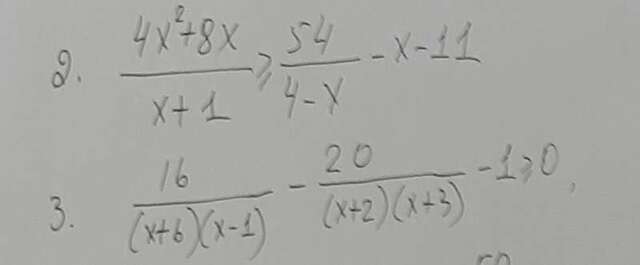 2. (4x²+8x)/(x+1) ≥ 54/(4-x) -x-11
3. 16/((x+6)(x-1)) - 20/((x+2)(x+3)) -1≥0,